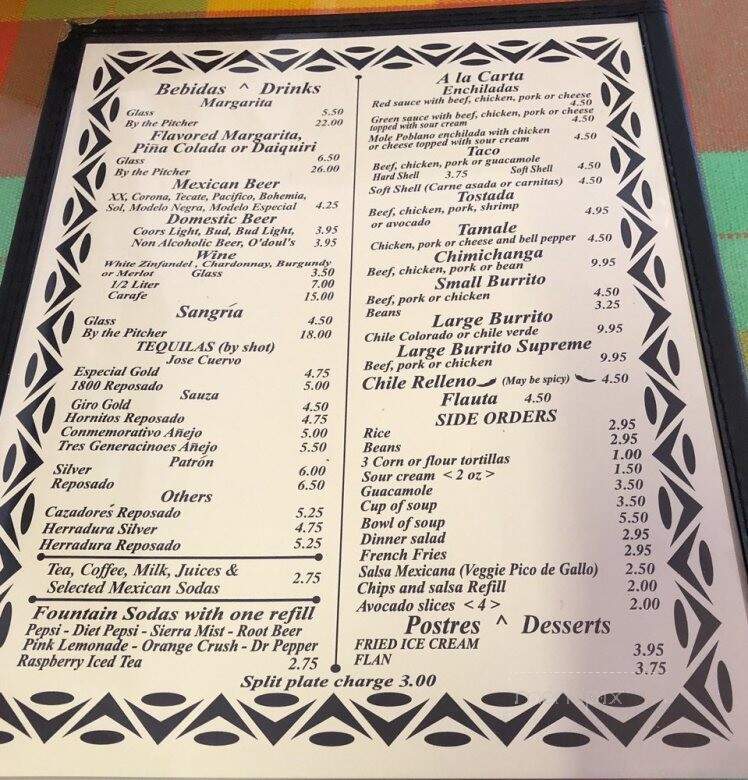 Bebidas ^ Drinks
Margarita
Glass 5.50
By the Pitcher 22.00
Flavored Margarita,
Piña Colada or Daiquiri
Glass 6.50
By the Pitcher 26.00
Mexican Beer
XX, Corona, Tecate, Pacifico, Bohemia,
Sol, Modelo Negra, Modelo Especial 4.25
Domestic Beer
Coors Light, Bud, Bud Light, 3.95
Non Alcoholic Beer, O'doul's 3.95
Wine
White Zinfandel, Chardonnay, Burgundy
or Merlot Glass 3.50
1/2 Liter 7.00
Carafe 15.00
Sangría
Glass 4.50
By the Pitcher 18.00
TEQUILAS (by shot)
Jose Cuervo
Especial Gold 4.75
1800 Reposado 5.00
Sauza
Giro Gold 4.50
Hornitos Reposado 4.75
Conmemorativo Añejo 5.00
Tres Generacinoes Añejo 5.50
Patrón
Silver 6.00
Reposado 6.50
Others
Cazadores Reposado 5.25
Herradura Silver 4.75
Herradura Reposado 5.25
Tea, Coffee, Milk, Juices &
Selected Mexican Sodas 2.75
Fountain Sodas with one refill
Pepsi - Diet Pepsi - Sierra Mist - Root Beer
Pink Lemonade - Orange Crush - Dr Pepper
Raspberry Iced Tea 2.75
A la Carta
Enchiladas
Red sauce with beef, chicken, pork or cheese
4.50
Green sauce with beef, chicken, pork or cheese
topped with sour cream 4.50
Mole Poblano enchilada with chicken
or cheese topped with sour cream 4.50
Taco
Beef, chicken, pork or guacamole
Hard Shell 3.75 Soft Shell 4.50
Soft Shell (Carne asada or carnitas) 4.50
Tostada
Beef, chicken, pork, shrimp
or avocado 4.95
Tamale
Chicken, pork or cheese and bell pepper 4.50
Chimichanga
Beef, chicken, pork or bean 9.95
Small Burrito
Beef, pork or chicken 4.50
Beans 3.25
Large Burrito
Chile Colorado or chile verde 9.95
Large Burrito Supreme
Beef, pork or chicken 9.95
Chile Relleno (May be spicy) 4.50
Flauta 4.50
SIDE ORDERS
Rice 2.95
Beans 2.95
3 Corn or flour tortillas 1.00
Sour cream < 2 oz > 1.50
Guacamole 3.50
Cup of soup 3.50
Bowl of soup 5.50
Dinner salad 2.95
French Fries 2.95
Salsa Mexicana (Veggie Pico de Gallo) 2.50
Chips and salsa Refill 2.00
Avocado slices < 4 > 2.00
Postres ^ Desserts
FRIED ICE CREAM 3.95
FLAN 3.75
Split plate charge 3.00